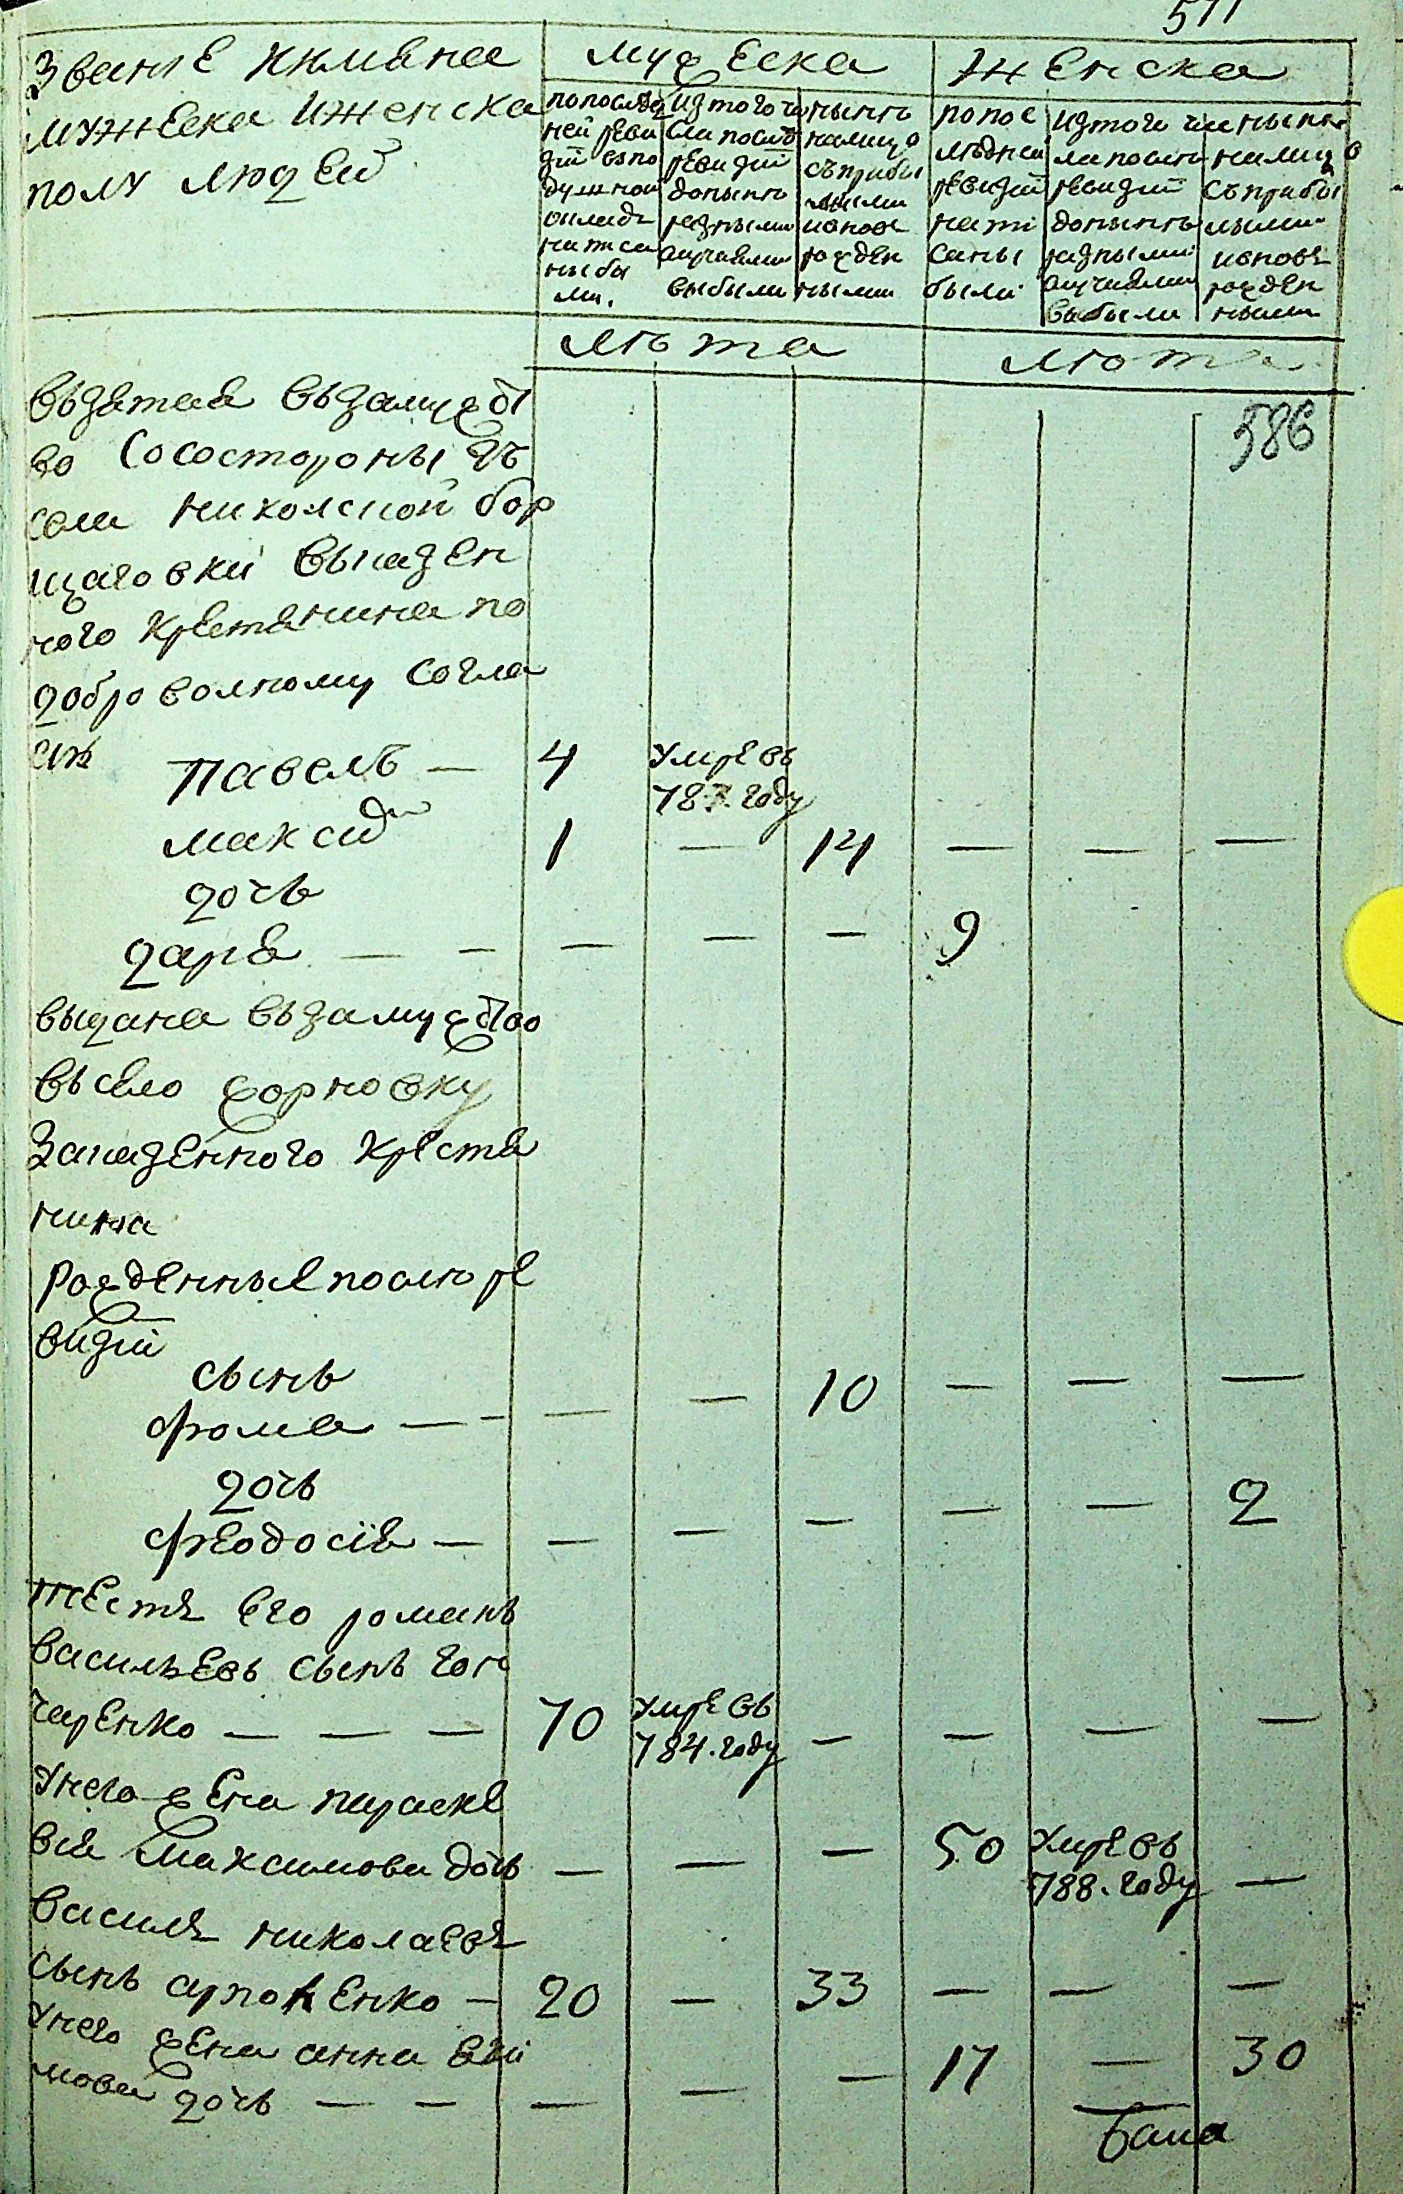 511
Званіе иимѣна
мужеска иженска
полу людей
мужеска
женска
попослед
ней реви
зіи впо
душной
окладъ
написа
ны бы
ли.
изтого чи
сла послѣ
ревизіи
допынѣ
разными
случаями
выбыли
нынѣ
налицо
съприбы
лыми
ивновь
рожден
ными
попос
лѣдней
ревизіи
напи
саны
были
изтого чи
сла послѣ
ревизіи
донынѣ
разными
случаями
выбыли
нынѣ
налицо
съприбы
лыми
ивновь
рожден
ными
лѣта
лѣта
586
взятая взамужст
во состороны изъ
села николской бор
щаговки выказен
ного крестянина по
добровольному согла
сію
Павелъ — 4 умре въ
787. году
максимъ 1 — 14 — — —
дочь
даря — — — — — 9
выдана взамужство
въсело жорновку
заказенного крестя
нина
рожденные послѣ ре
визіи
сынъ
фома — — — — 10 — — —
дочь
феодосія — — — — — — 2
тестя его романъ
васильевъ сынъ гон
чаренко — — — 70 умре въ
784. году — — — —
унего жена параске
вія максимова дочь — — — 50 умре въ
788. году —
василя николаевя
сынъ — 20 — 33 — — —
унего жена анна
мова дочь — — — — — 17 — 30